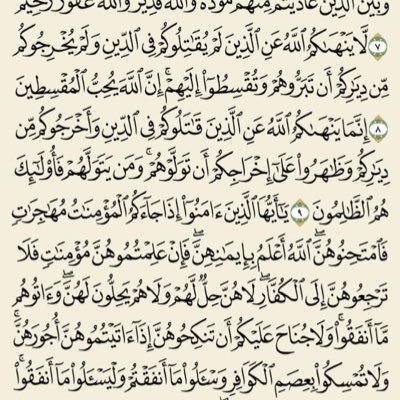 وَبَيْنَ الَّذِينَ عَادَيْتُم مِّنْهُم مَّوَدَّةً وَاللَّهُ قَدِيرٌ وَاللَّهُ غَفُورٌ رَّحِيمٌ
٧ لَا يَنْهَىٰكُمُ اللَّهُ عَنِ الَّذِينَ لَمْ يُقَٰتِلُوكُمْ فِي الدِّينِ وَلَمْ يُخْرِجُوكُم
مِّن دِيَٰرِكُمْ أَن تَبَرُّوهُمْ وَتُقْسِطُوٓا۟ إِلَيْهِمْ إِنَّ اللَّهَ يُحِبُّ الْمُقْسِطِينَ
٨ إِنَّمَا يَنْهَىٰكُمُ اللَّهُ عَنِ الَّذِينَ قَٰتَلُوكُمْ فِي الدِّينِ وَأَخْرَجُوكُم مِّن
دِيَٰرِكُمْ وَظَٰهَرُوا۟ عَلَىٰٓ إِخْرَاجِكُمْ أَن تَوَلَّوْهُمْ وَمَن يَتَوَلَّهُمْ فَأُو۟لَٰٓئِكَ
هُمُ الظَّٰلِمُونَ ٩ يَٰٓأَيُّهَا الَّذِينَ ءَامَنُوٓا۟ إِذَا جَآءَكُمُ الْمُؤْمِنَٰتُ مُهَٰجِرَٰتٍ
فَامْتَحِنُوهُنَّ اللَّهُ أَعْلَمُ بِإِيمَٰنِهِنَّ فَإِنْ عَلِمْتُمُوهُنَّ مُؤْمِنَٰتٍ فَلَا
تَرْجِعُوهُنَّ إِلَى الْكُفَّارِ لَا هُنَّ حِلٌّ لَّهُمْ وَلَا هُمْ يَحِلُّونَ لَهُنَّ وَءَاتُوهُم
مَّآ أَنفَقُوا۟ وَلَا جُنَاحَ عَلَيْكُمْ أَن تَنكِحُوهُنَّ إِذَآ ءَاتَيْتُمُوهُنَّ أُجُورَهُنَّ
وَلَا تُمْسِكُوا۟ بِعِصَمِ الْكَوَافِرِ وَسْـَٔلُوا۟ مَآ أَنفَقْتُمْ وَلْيَسْـَٔلُوا۟ مَآ أَنفَقُوا۟